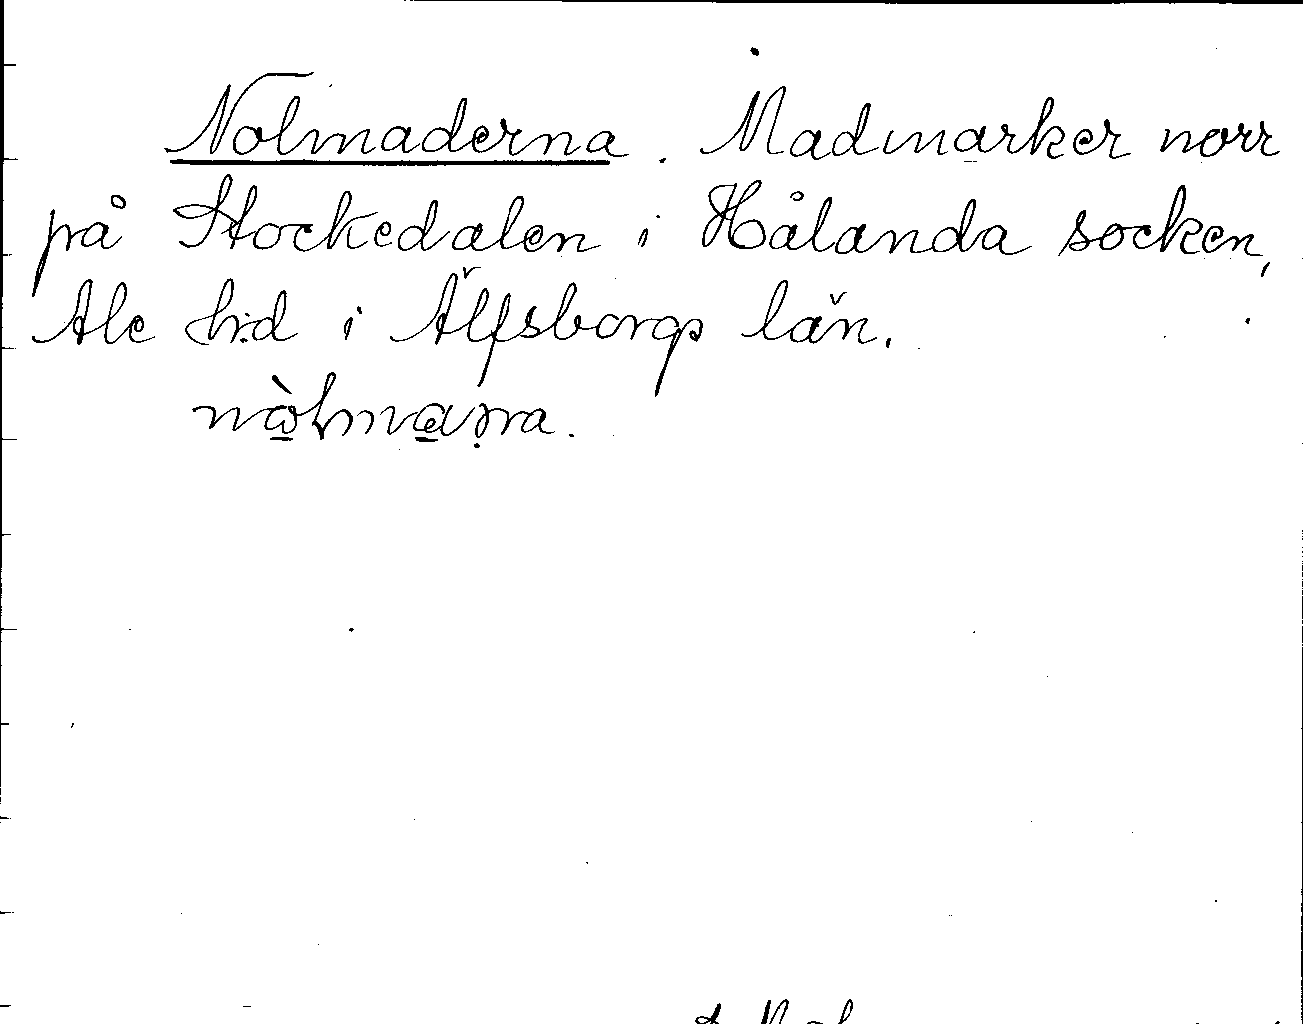 Nolmaderna. Madmarker norr
på Stockedalen i Hålanda socken,
Ale h:d i Älfsborgs län.